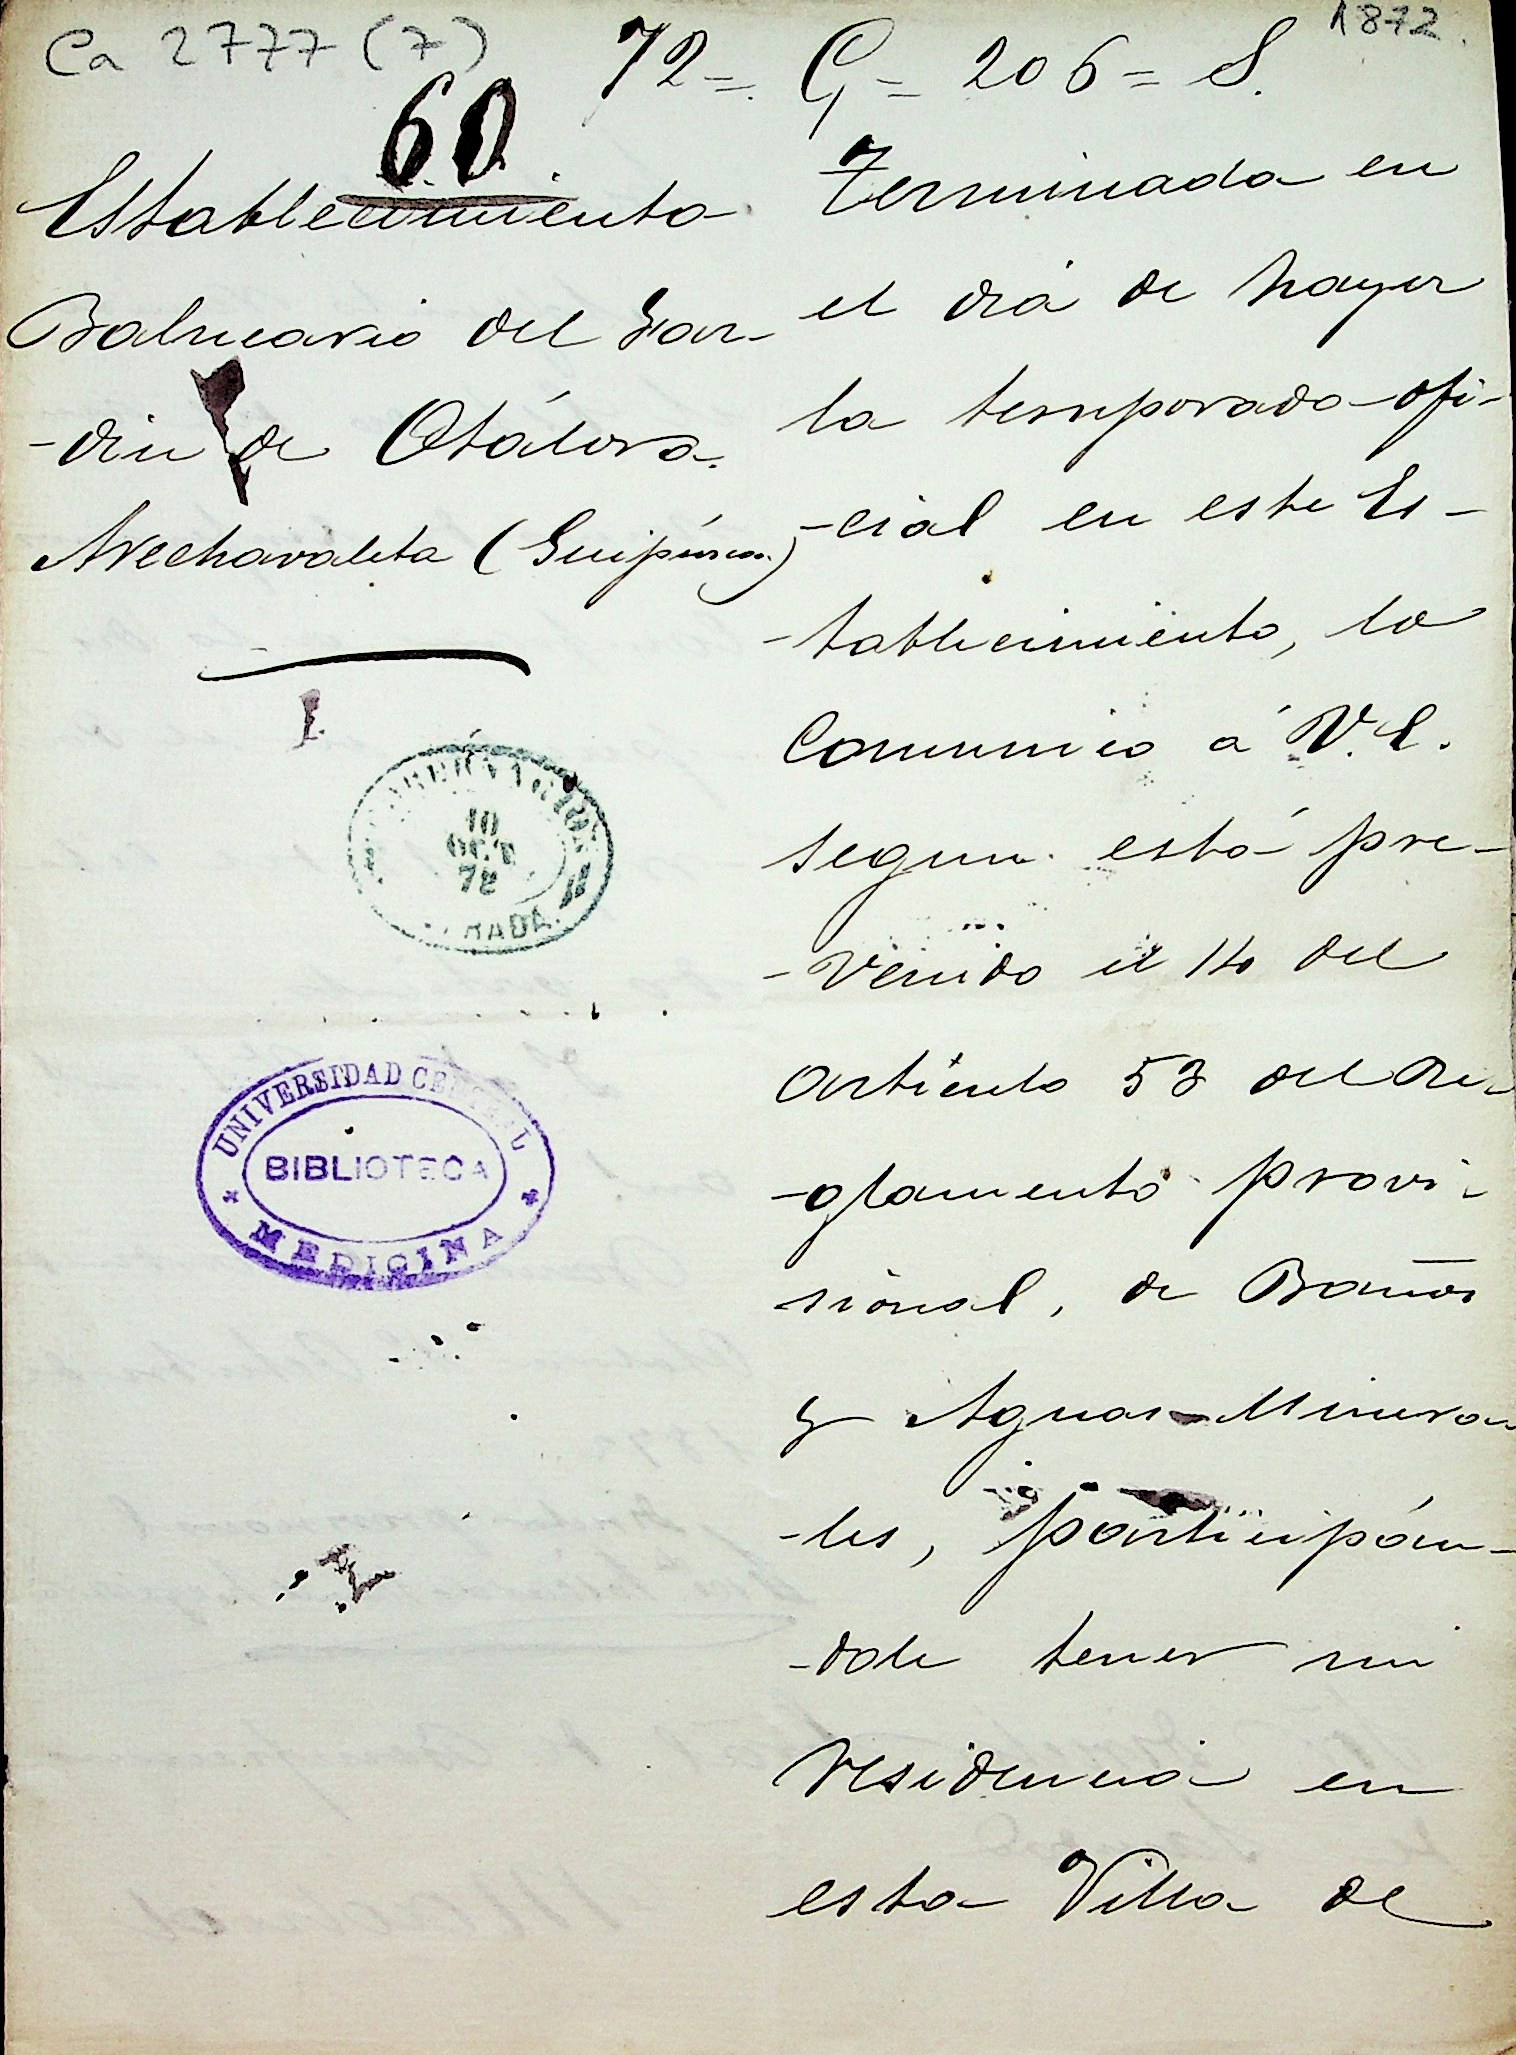 Ca 2777 (7)
1872.
72=. G= 206= S.
60
Establecimiento
Balneario del Jar-
-din de Otálora.
Arechavaleta (Guipúzcoa.)
10
OCT
72
UNIVERSIDAD CENTRAL
BIBLIOTECA
MEDICINA
Terminada en
el dia de hayer
la temporada ofi-
-cial en este Es-
-tablecimiento, lo
Comunico á V.E.
segun está pre-
-venido el 14 del
Articulo 53 del Re-
-glamento provi-
sional, de Baños
y Aguas Minera-
-les, participán-
-dole tener mi
residencia en
esta Villa de